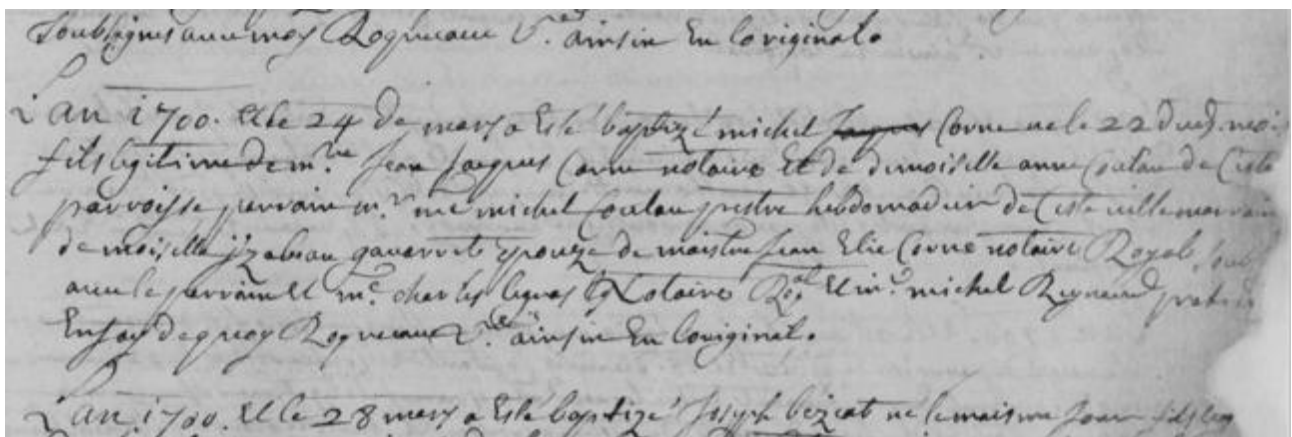 Soubsignes avec moy Roqueaux V.re ainsin En loriginal.
L'an 1700. et le 24 de mars a Esté baptizé michel Jaques Corne ne le 22 dud. mois
fils legitime de m.tre Jean Jaques Corne notaire et de demoiselle anne de Ceste
parroisse parrain m.r m.e michel prestre hebdomadier de Ceste ville marraine
de moiselle yzabeau gavarrete epouze de maistre Jean Elie Corne notaire Royal
avec le parrain et m.e charles notaire Roy.al et m.r michel Reynaud
En foy de quoy Roqueaux V.re ainsin En loriginal.
L'an 1700. et le 28 mars a Esté baptizé Joseph bezcat né le mais me Jean fils leg